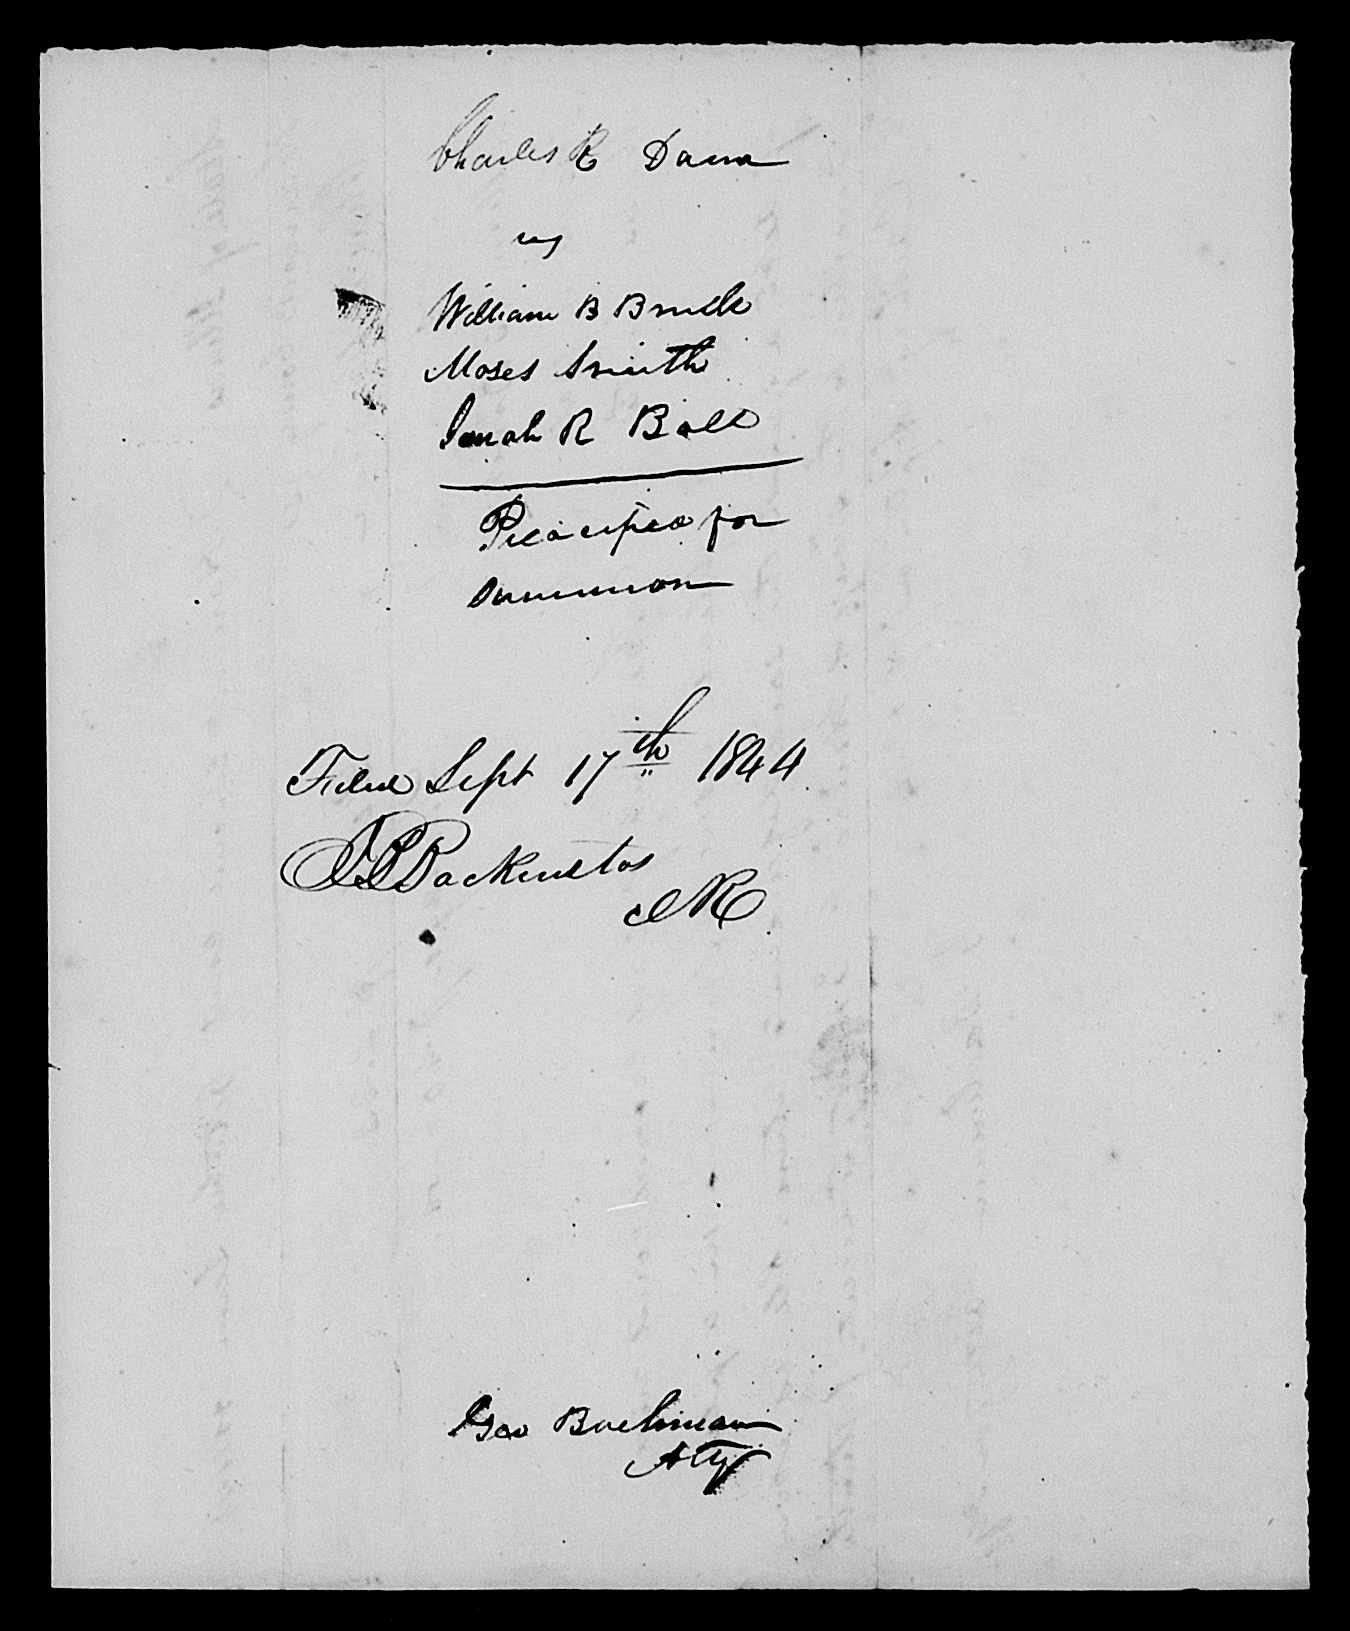 Charles R Dana
vs
William B Brink
Moses Smith
Jonah R Ball
Precipea for
summon
Filed Sept 17th 1844
J B Backenstos
clk
Geo Bachman
Atty